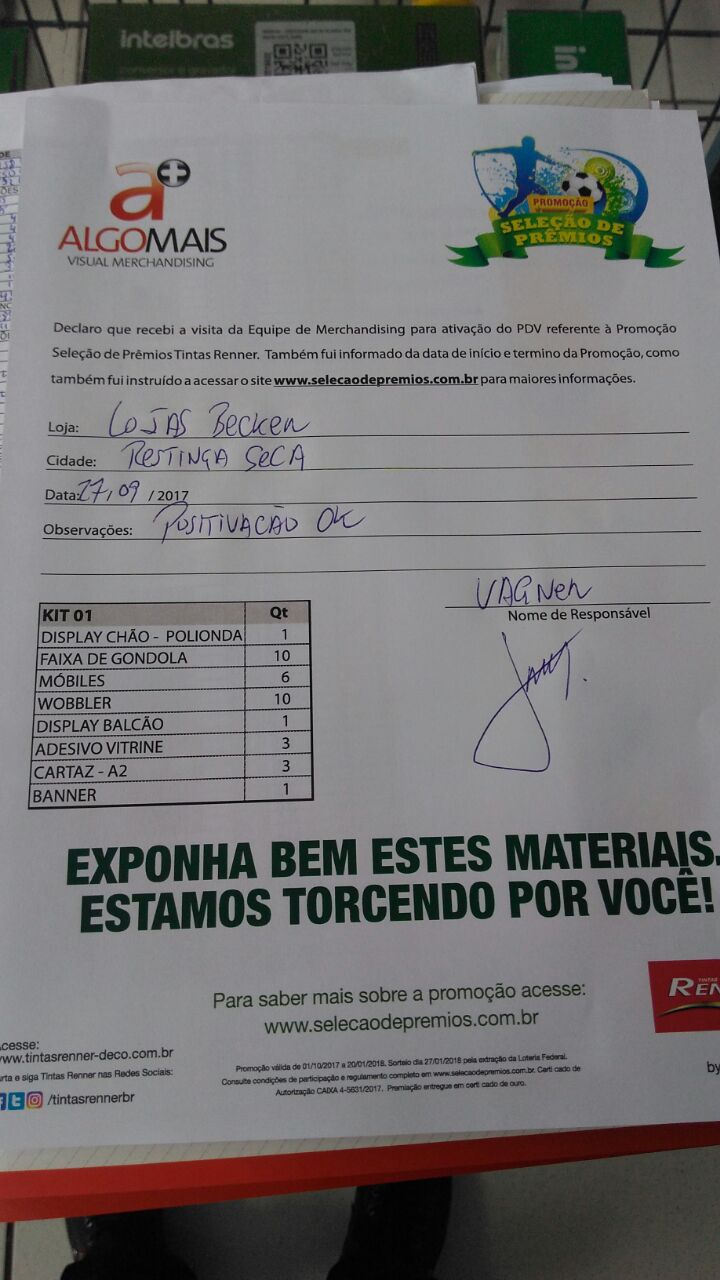 intelbras
a+
ALGOMAIS
VISUAL MERCHANDISING
PROMOÇÃO
SELEÇÃO DE
PRÊMIOS
Declaro que recebi a visita da Equipe de Merchandising para ativação do PDV referente à Promoção
Seleção de Prêmios Tintas Renner. Também fui informado da data de início e termino da Promoção, como
também fui instruído a acessar o site www.selecaodepremios.com.br para maiores informações.
Loja: LOJAS BECKER
Cidade: RESTINGA SECA
Data: 27/09 / 2017
Observações: POSITIVAÇÃO OK
VAGNER
Nome de Responsável
KIT 01 Qt
DISPLAY CHÃO - POLIONDA 1
FAIXA DE GONDOLA 10
MÓBILES 6
WOBBLER 10
DISPLAY BALCÃO 1
ADESIVO VITRINE 3
CARTAZ - A2 3
BANNER 1
EXPONHA BEM ESTES MATERIAIS.
ESTAMOS TORCENDO POR VOCÊ!
Para saber mais sobre a promoção acesse:
www.selecaodepremios.com.br
TINTAS
REN
cesse:
ww.tintasrenner-deco.com.br
urta e siga Tintas Renner nas Redes Sociais:
/tintasrennerbr
Promoção válida de 01/10/2017 a 20/01/2018. Sorteio dia 27/01/2018 pela extração da Loteria Federal.
Consulte condições de participação e regulamento completo em www.selecaodepremios.com.br. Certi cado de
Autorização CAIXA 4-5631/2017. Premiação entregue em certi cado de ouro.
by